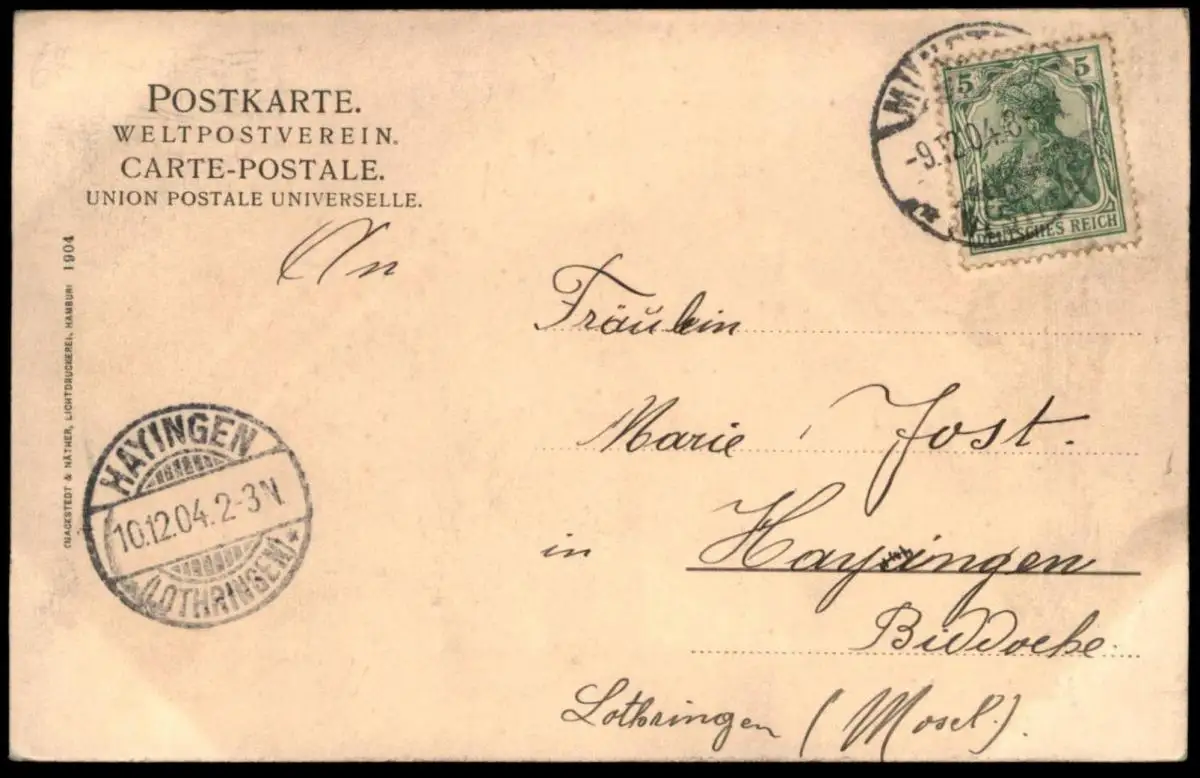 POSTKARTE.
WELTPOSTVEREIN.
CARTE-POSTALE.
UNION POSTALE UNIVERSELLE.
5 5
DEUTSCHES REICH
-9.12.04.8-
An
Fräulein
Marie Jost.
in Hayingen
Lothringen (Mosel.)
HAYINGEN
10.12.04.2-3N
(LOTHRINGEN)
(KNACKSTEDT & NÄTHER, LICHTDRUCKEREI, HAMBURG 1904